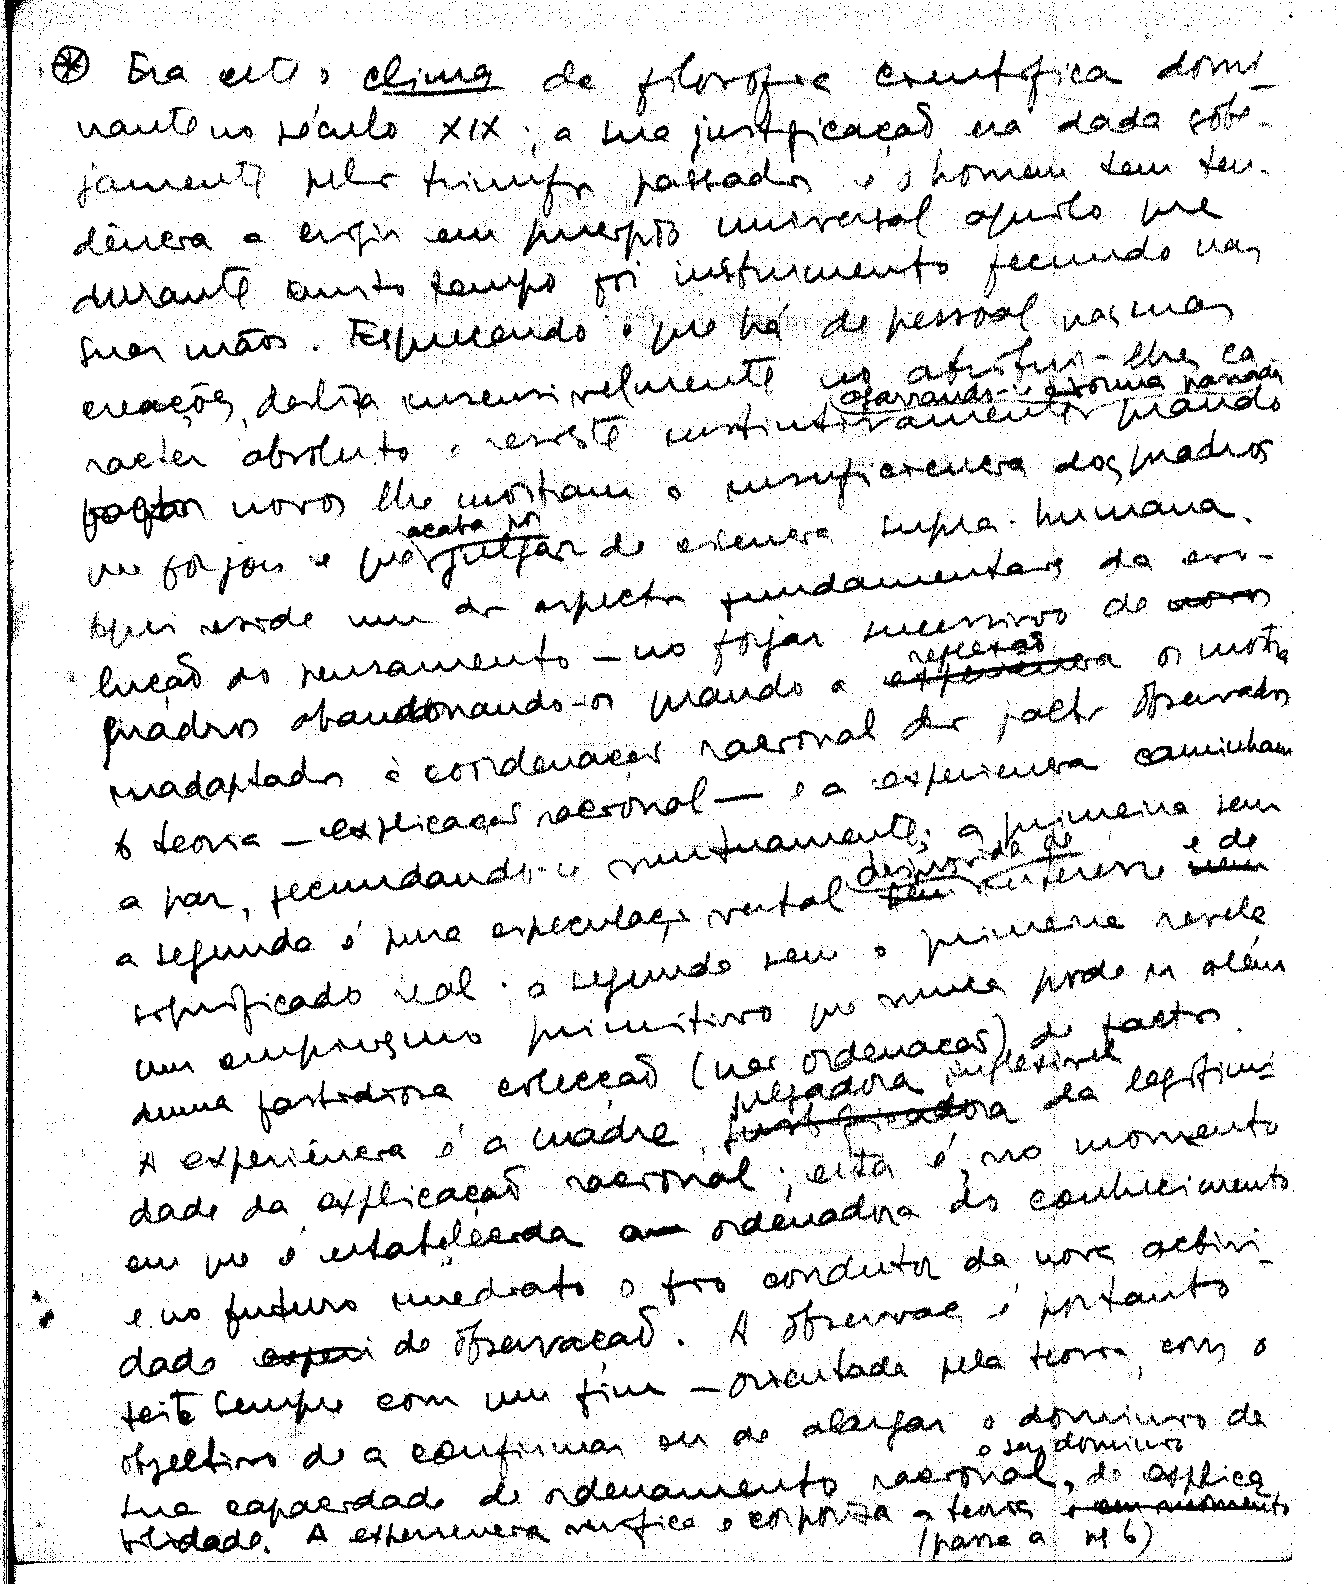 Era este o clima de filosofia científica domi-
nante no século XIX; a sua justificação era dada sobe-
jamente pelos triunfos passados e o homem tem ten-
dência a erigir em princípio universal aquilo que
durante muito tempo foi instrumento fecundo nas
suas mãos. Esquecendo o que há de pessoal nas suas
creações, desliza insensivelmente no atribui-lhes ca
agarrando-se à forma passada
racter absoluto e resiste instintivamente quando
factos novos lhe mostram a insuficiencia dos quadros
acaba por
que forjou e que julgar de essencia supra-humana.
Aqui reside um dos aspectos fundamentais da evo-
lução do pensamento - no forjar sucessivo de novos
reflexão
quadros abandonando-os quando a experiencia os mostra
inadaptados à coordenação racional dos factos observados
A teoria - explicação racional - e a experiencia caminham
a par, fecundando-se mutuamente; a primeira sem
desprovida de e de
a segunda é pura especulação verbal sem interesse nem
significado real. a segunda sem a primeira revela
um empirismo primitivo que nunca pode ir além
duma fastidiosa colecção (não ordenação) de factos.
julgadora inflexível
A experiência é a madre, justificadora da legitimi-
dade da explicação racional; esta é, no momento
em que é estabelecida a ordenadora do conhecimento
e no futuro imediato o fio condutor da nova activi-
dade experi de observação. A observação é portanto
feita sempre com um fim - orientada pela teoria, com o
objectivo de a confirmar ou de alargar o dominio de
o seu dominio
sua capacidade de ordenamento racional, de explica
bilidade. A experiencia verifica e corporiza a teoria e em momento
(passa a nº 6)